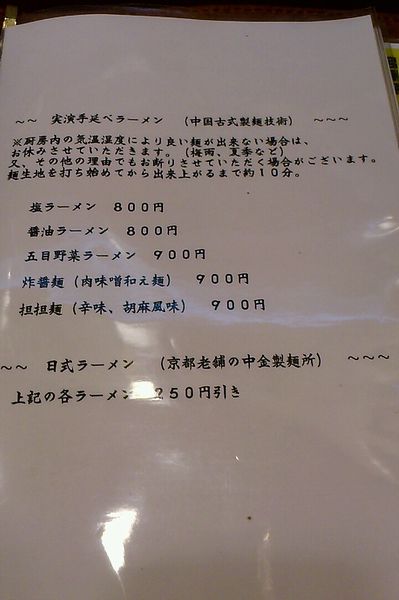 ~~ 実演手延べラーメン (中国古式製麺技術) ~~~
※厨房内の気温湿度により良い麺が出来ない場合は、
お休みさせていただきます。(梅雨、夏季など)
又、その他の理由でもお断りさせていただく場合がございます。
麺生地を打ち始めてから出来上がるまで約10分。
塩ラーメン 800円
醤油ラーメン 800円
五目野菜ラーメン 900円
炸醤麺(肉味噌和え麺) 900円
担担麺(辛味、胡麻風味) 900円
~~ 日式ラーメン (京都老舗の中金製麺所) ~~~
上記の各ラーメン 250円引き